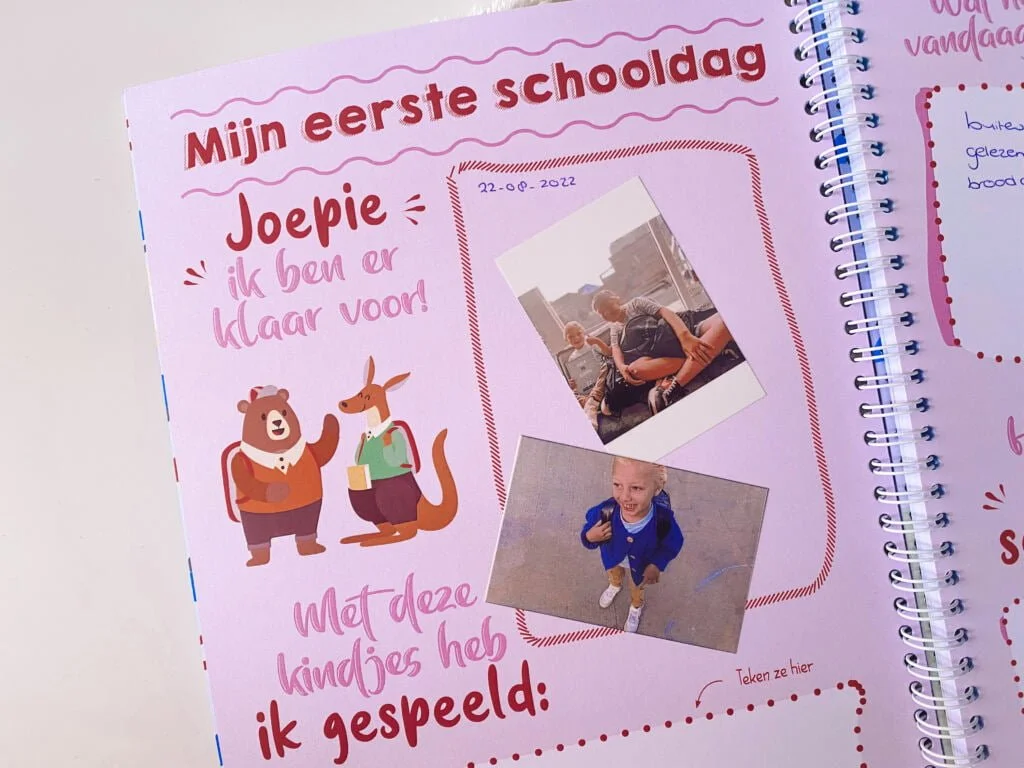 Mijn eerste schooldag
Joepie
ik ben er
klaar voor!
22-08-2022
Met deze
kindjes heb
ik gespeeld:
Teken ze hier
gelezen